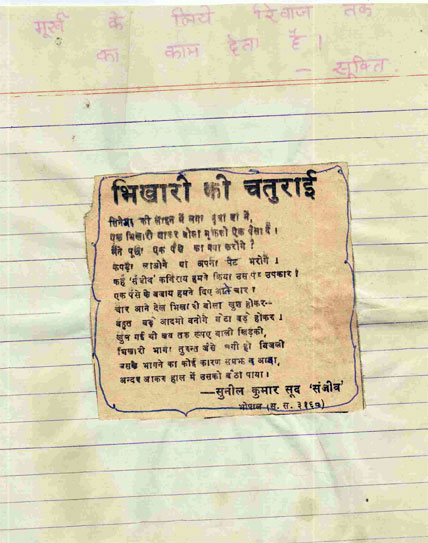 मूर्ख के लिये रिवाज तक
का काम देता है।
— सूक्ति
भिखारी की चतुराई
सिनेमा की लाइन में लगा हुआ था मैं,
एक भिखारी आकर बोला मुझको एक पैसा दें।
मैंने पूछा एक पैसे का क्या करोगे?
कपड़ा लाओगे या अपना पेट भरोगे।
कहें 'संजीव' कविराय हमने किया उस पर उपकार!
एक पैसे के बजाय हमने दिए आने चार।
चार आने देख भिखारी बोला खुश होकर--
बहुत बड़े आदमी बनोगे बेटा बड़े होकर।
खुल गई थी तब तक रुपए वाली खिड़की,
भिखारी भागा तुरन्त जैसे हो बिजली
उसके भागने का कोई कारण समझ न आया,
अन्दर जाकर हाल में उसको बैठा पाया।
—सुनील कुमार सूद 'संजीव'
भोपाल (म. स. ३१६७)